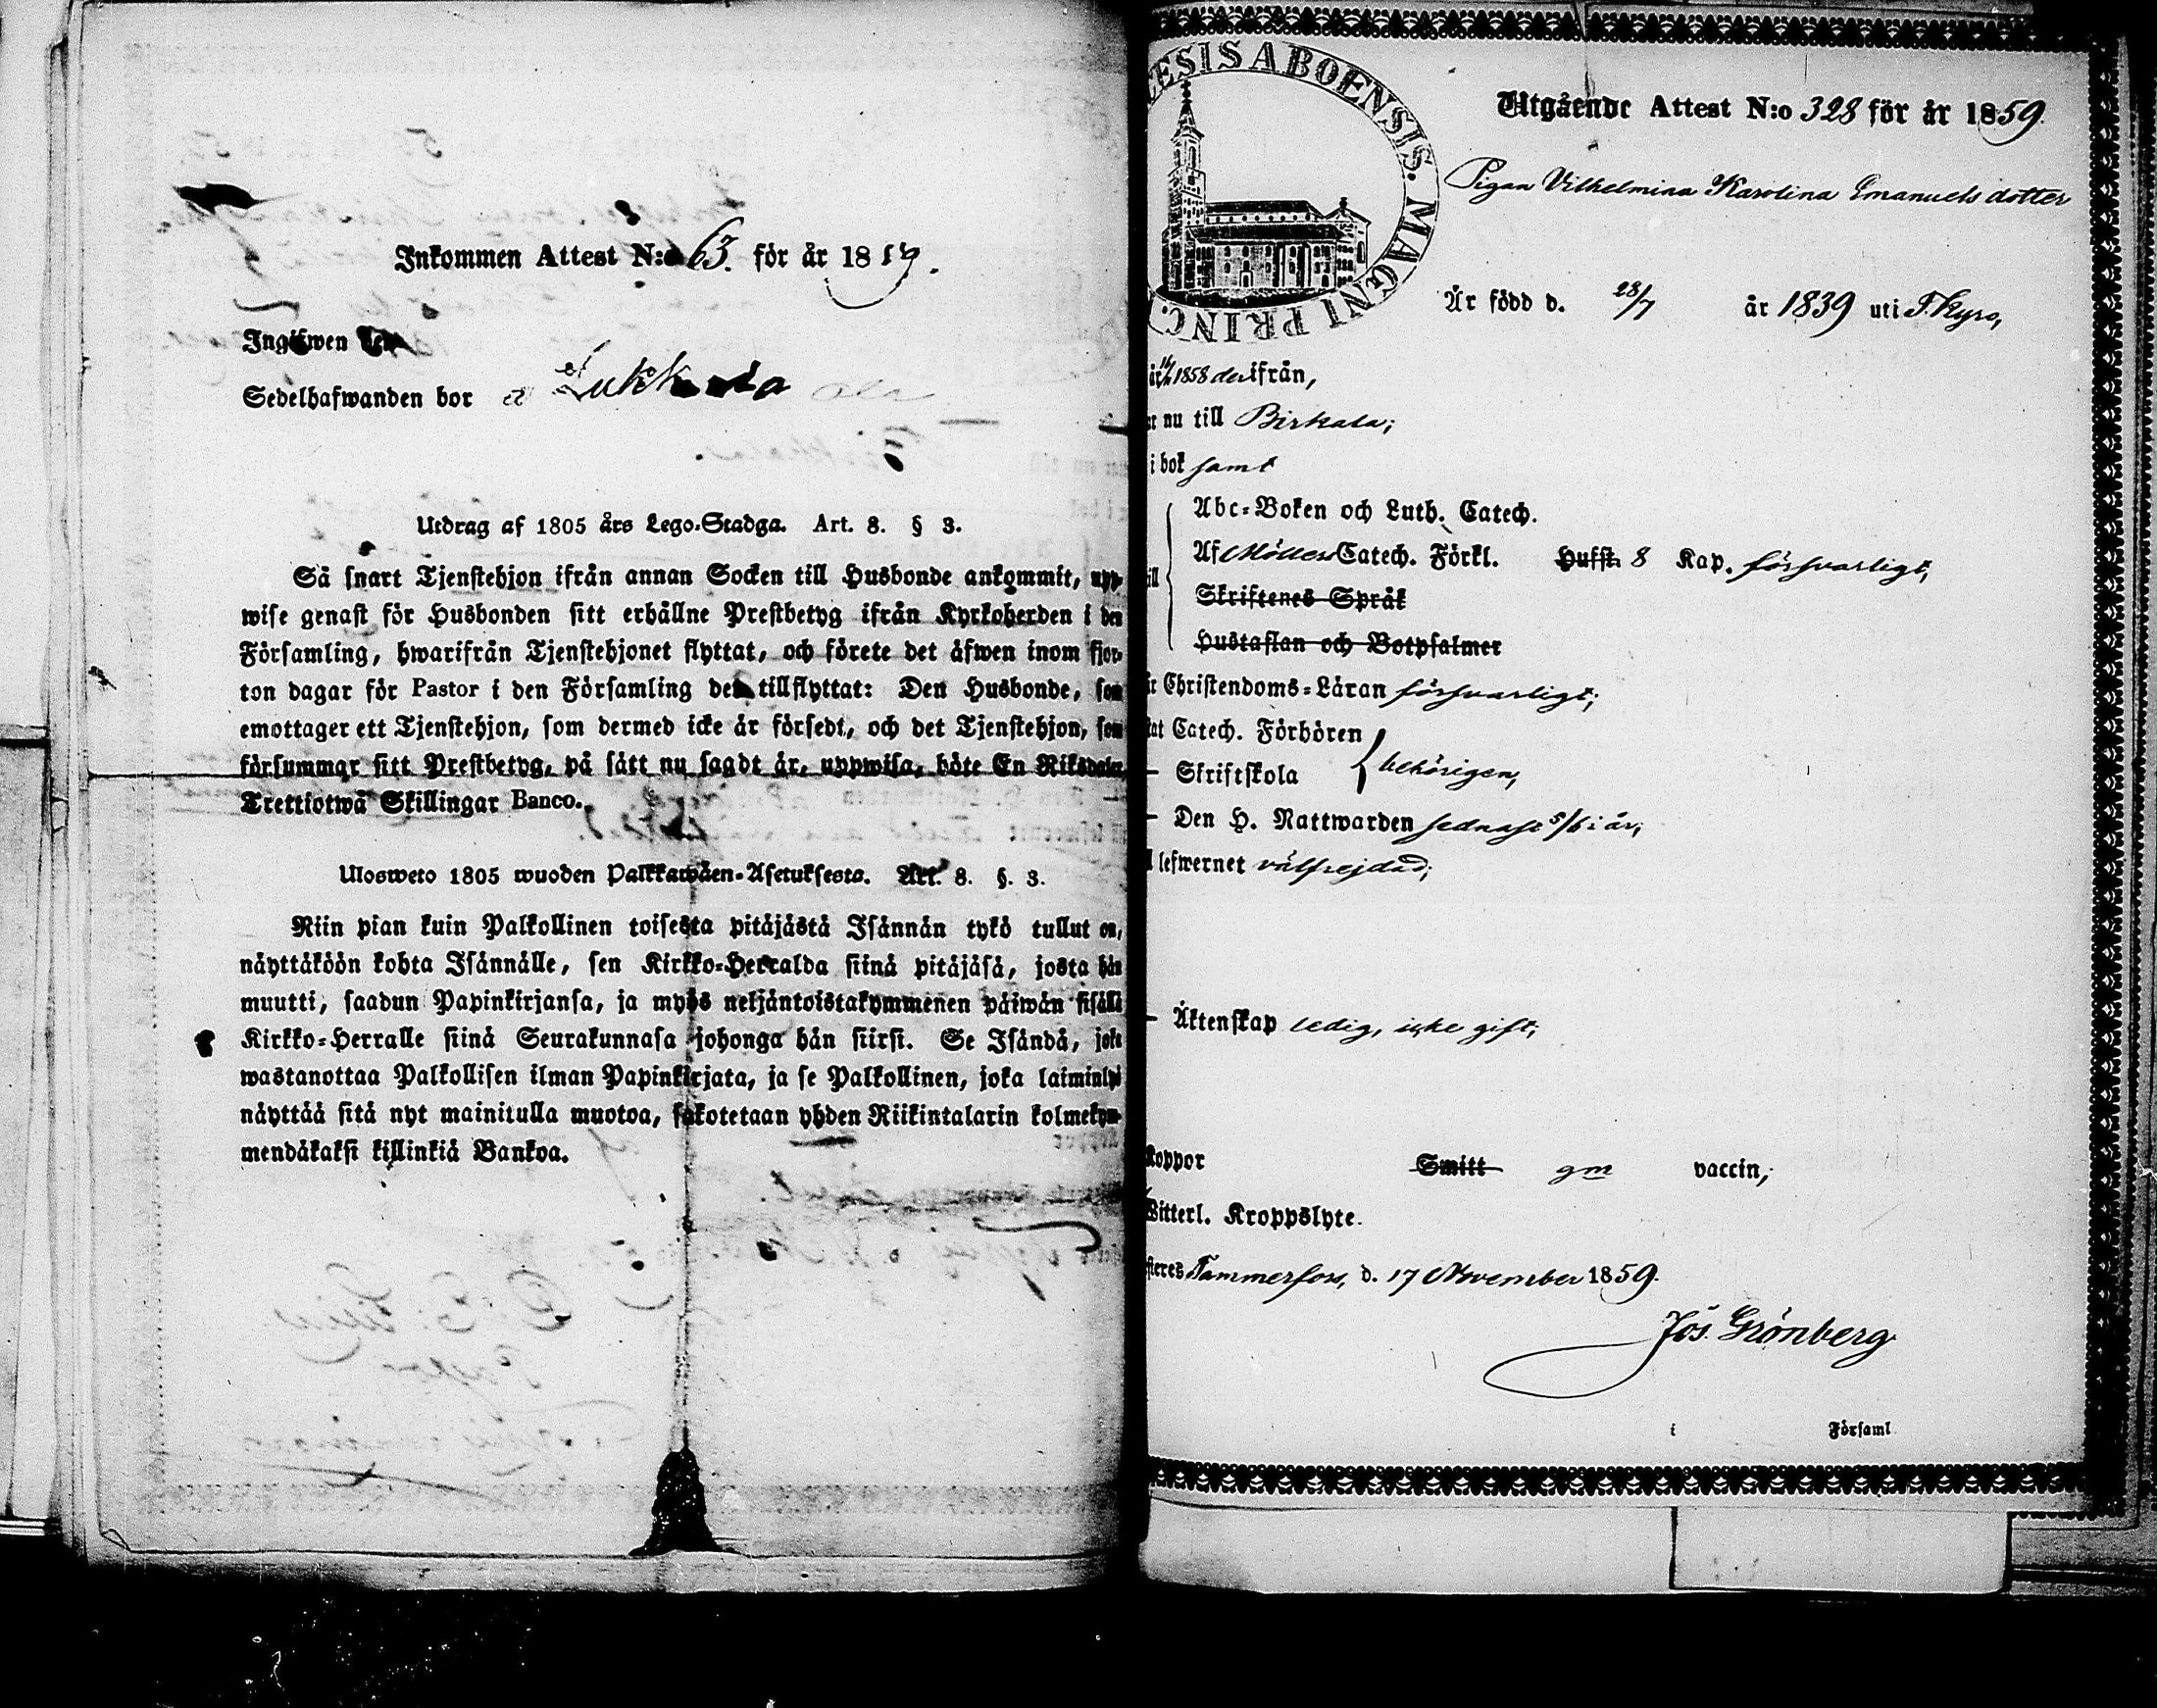 Inkommen Attest N:o 63. för år 1859.
Ingifwen den
Sedelhafwanden bor
Utdrag af 1805 års Lego-Stadga. Art. 8. § 3.
Så snart Tjenstehjon ifrån annan Socken till Husbonde ankommit, upp-
wise genast för Husbonden sitt erhållne Prestbetyg ifrån Kyrkoherden i den
Församling, hwarifrån Tjenstehjonet flyttat, och förete det äfwen inom fjor-
ton dagar för Pastor i den Församling det tillflyttat: Den Husbonde, som
emottager ett Tjenstehjon, som dermed icke är försedt, och det Tjenstehjon, som
försummar sitt Prestbetyg, på sätt nu sagdt är, uppwisa, böte En Riksdaler
Trettiotwå Skillingar Banco.
Ulosweto 1805 wuoden Palkkawäen-Asetuksesta. Art. 8. §. 3.
Niin pian kuin Palkollinen toisesta pitäjästä Isännän tykö tullut on,
näyttäköön kohta Isännälle, sen Kirkko-Herralda siinä pitäjäsä, josta hän
muutti, saadun Papinkirjansa, ja myös neljäntoistakymmenen päiwän sisällä
Kirkko-Herralle siinä Seurakunnasa johonga hän siirsi. Se Isändä, joka
wastanottaa Palkollisen ilman Papinkirjata, ja se Palkollinen, joka laiminlyö
näyttää sitä nyt mainitulla muotoa, sakotetaan yhden Riikintalarin kolmekym-
mendäkaksi killinkiä Bankoa.
ESIS ABOENSIS. MAGNI PRINC.
Utgående Attest N:o 328 för år 1859.
Pigan Vilhelmina Karolina Emanuelsdotter
Är född d. 28/7 år 1839 uti T. Kyro,
år 1858 derifrån,
nu till Birkala;
i bok samt
Abc-Boken och Luth. Catech.
Af Möllers Catech. Förkl. Hufst. 8 Kap. försvarligt,
Skriftenes Språk
Hustaflan och Botpsalmer
Christendoms-Läran försvarligt;
Catech. Förhören
— Skriftskola } behörigen,
— Den H. Nattwarden sednast 5/6 i år;
lefwernet välfrejdad;
— Äktenskap ledig, icke gift;
Koppor Smitt gm vaccin;
Witterl. Kroppslyte.
Tammerfors, d. 17 November 1859.
Jos. Grönberg
i Församl.